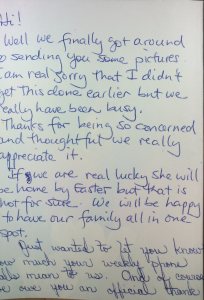 Hi!
Well we finally got around
to sending you some pictures
I am real sorry that I didn't
get this done earlier but we
really have been busy.
Thanks for being so concerned
and thoughtful we really
appreciate it.
If we are real lucky she will
be home by Easter but that is
not for sure. We will be happy
to have our family all in one
spot.
Just wanted to let you know
how much your weekly phone
calls mean to us. And of course
we owe you an official thanks